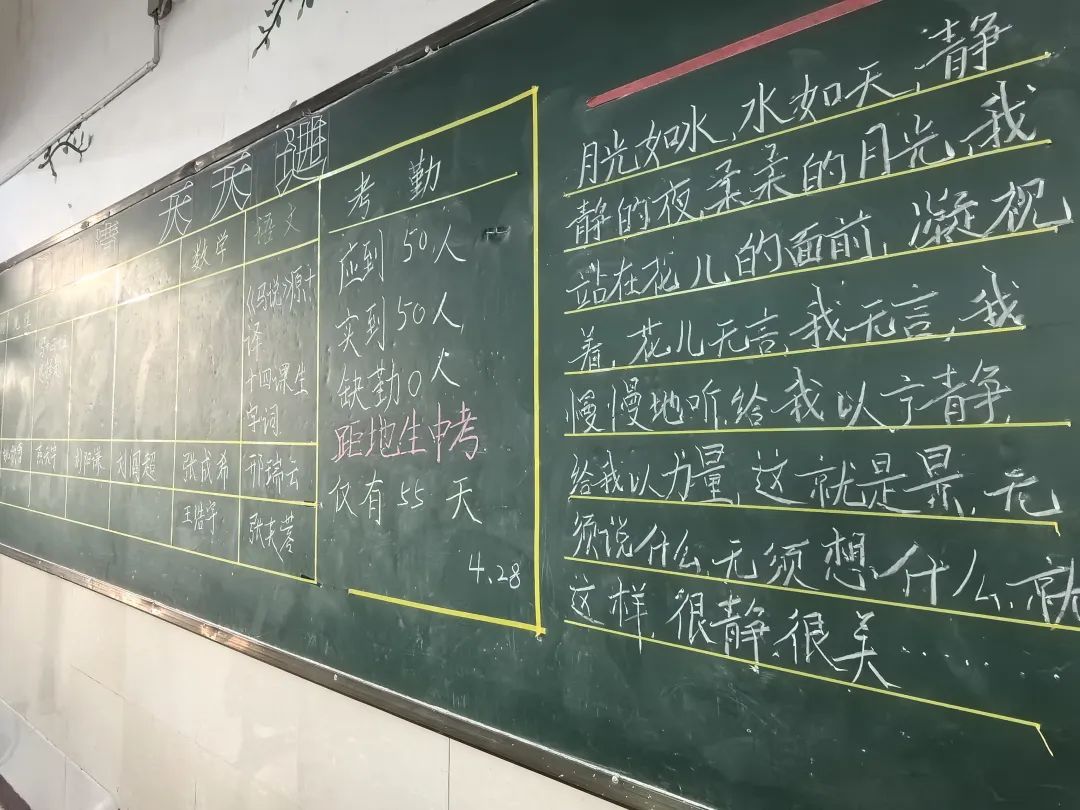 清 天天進
数学 语文
《马说》原+
译
十四课生
字词
张成希 邢瑞云
王浩宇 张芙蓉
考勤
应到 50人
实到 50人
缺勤 0人
距地生中考
仅有 55 天
4.28
月光如水,水如天,静
静的夜,柔柔的月光,我
站在花儿的面前,凝视
着,花儿无言,我无言,我
慢慢地听,给我以宁静,
给我以力量,这就是景,无
须说什么,无须想什么,就
这样,很静,很美……